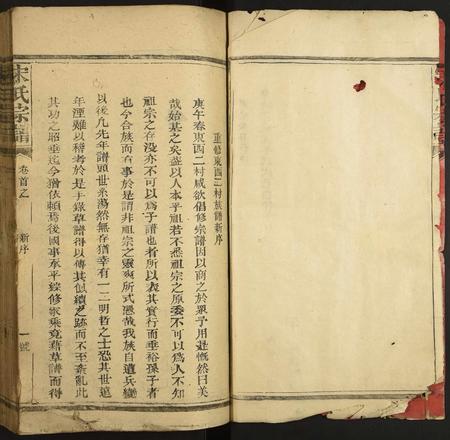 重修東西二村族譜新序
庚午春東西二村咸欲倡修宗譜因以商之於眾予用是慨然曰美
哉始基之矣蓋以人本乎祖若不悉祖宗之原委不可以為人不知
祖宗之存没亦不可以為子譜也者所以表其實行而垂裕孫子者
也今合族而有事於是謂非祖宗之靈爽所式憑哉我族自遭兵燹
以後凡先年譜頭世系蕩然無存猶幸有一二明哲之士恐其世遠
年湮難以稽考於是手錄草譜得以傳其似續之跡而不至紊亂此
其功之昭垂迄今猶依賴焉後國事承平綜修家乘憑藉草譜而得
宋氏宗譜
卷首之
新序
一號